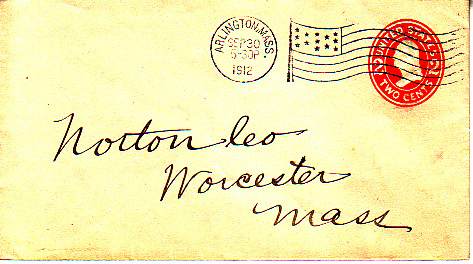 ARLINGTON, MASS.
SEP 30
5-30P
1912
UNITED STATES
2 2
TWO CENTS
Norton Co
Worcester
Mass